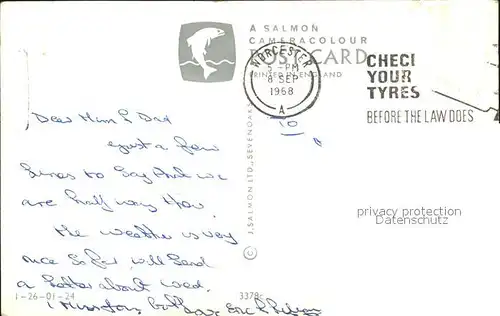 A SALMON
CAMERACOLOUR
POST CARD
PRINTED IN ENGLAND
WORCESTER
5 - PM
8 SEP
1968
A
CHECK
YOUR
TYRES
BEFORE THE LAW DOES
Dear Mum & Dad
Just a few
lines to say that we
are half way thou.
The weather is very
nice so far, will send
a letter about wed.
Eric
J. SALMON LTD., SEVENOAKS ©
privacy protection
Datenschutz
1-26-01-24
3378c